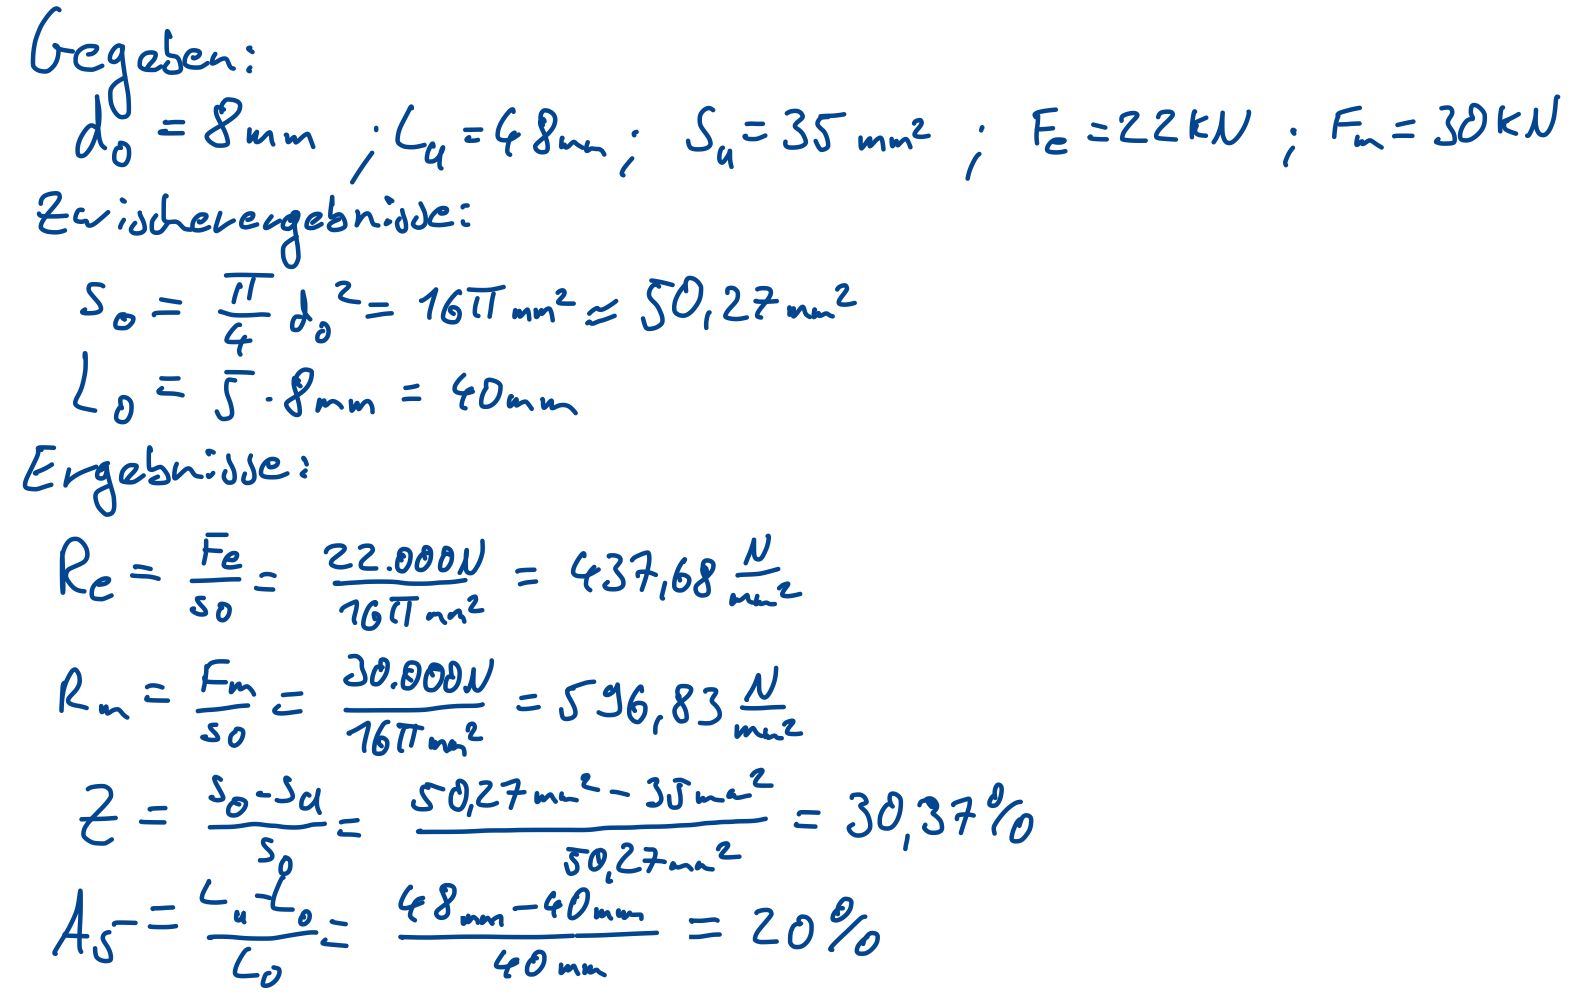 Gegeben:
d₀ = 8mm ; Lᵤ = 48mm ; Sᵤ = 35 mm² ; Fₑ = 22kN ; Fₘ = 30kN
Zwischenergebnisse:
S₀ = π/4 d₀² = 16π mm² ≈ 50,27mm²
L₀ = 5 · 8mm = 40mm
Ergebnisse:
Rₑ = Fₑ/S₀ = 22.000N/16π mm² = 437,68 N/mm²
Rₘ = Fₘ/S₀ = 30.000N/16π mm² = 596,83 N/mm²
Z = S₀-Sᵤ/S₀ = 50,27mm² - 35mm²/50,27mm² = 30,37%
A₅ = Lᵤ-L₀/L₀ = 48mm-40mm/40mm = 20%